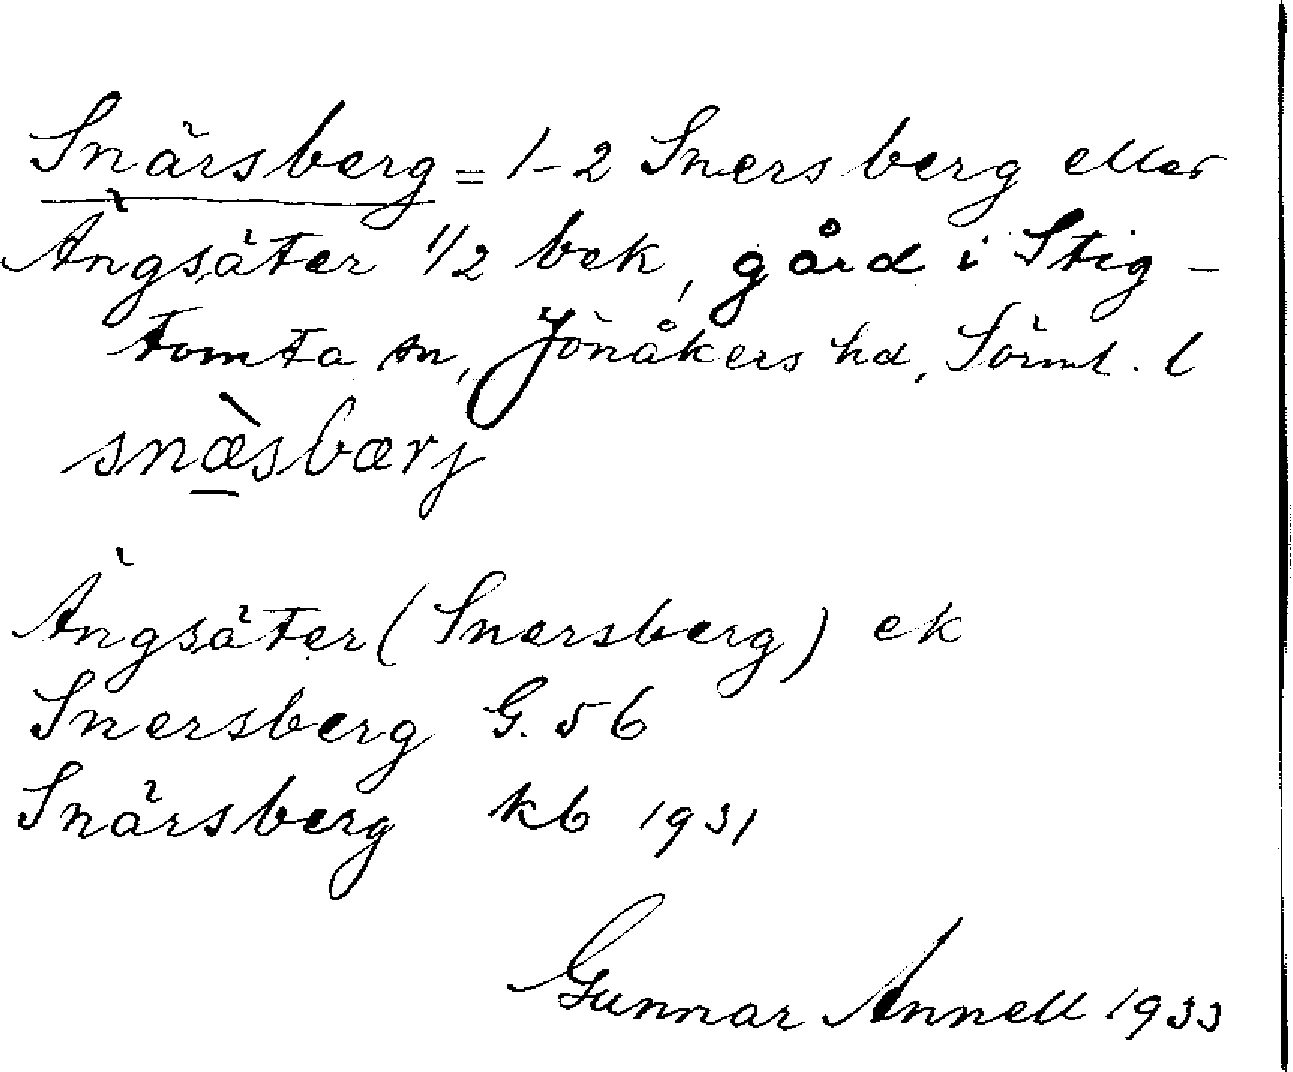 Snärsberg = 1-2 Snersberg eller
Ängsäter 1/2 bek, gård i Stig-
tomta sn, Jönåkers hd, Sörml. l
snæ̀sbærj
Ängsäter (Snersberg) ek
Snersberg G. 56
Snärsberg kb 1931
Gunnar Annell 1933